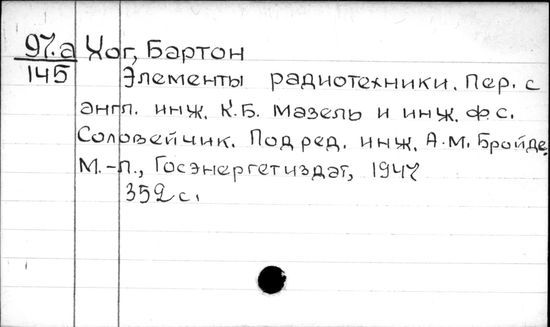 97.а Хог, Бартон
145 Элементы радиотехники. Пер. с
англ. инж. К.Б. Мазель и инж. Ф.С.
Соловейчик. Под ред. инж. А.М. Бройде
М.-Л., Госэнергетиздат, 1947
352 с.